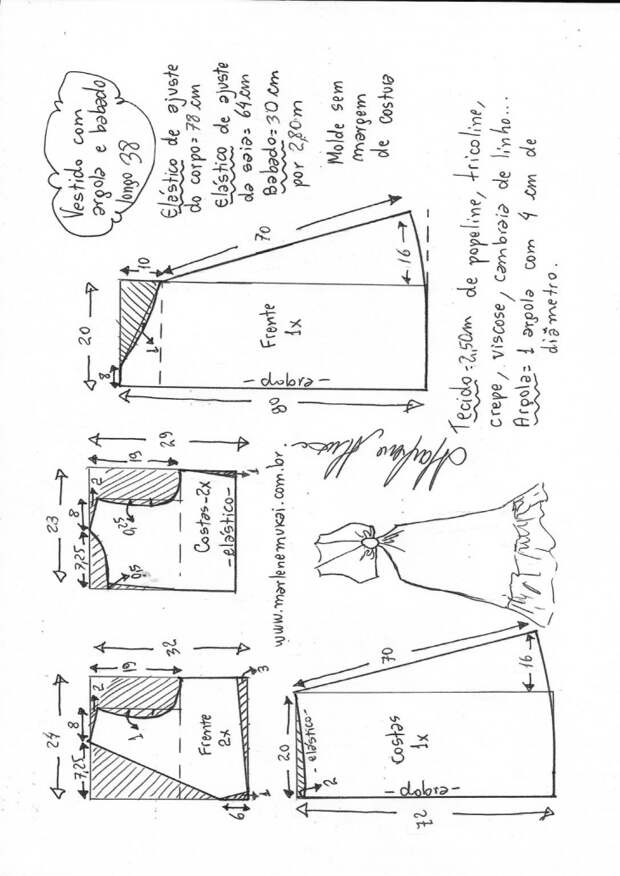 Vestido com
argola e babado
longo 38
Elástico de ajuste
do corpo=78 cm
Elástico de ajuste
da saia=64cm
Babado=30 cm
por 2,80m
Molde sem
margem
de costura
20
8
10
1
70
16
Frente
1x
-dobra-
80
Tecido=2,50m de popeline, tricoline,
crepe, viscose, cambraia de linho...
Argola= 1 argola com 4 cm de
diâmetro.
23
7,25
8
2
19
29
0,5
0,5
Costas-2x
-elástico-
1
www.marlenemukai.com.br
24
7,25
8
2
19
32
1
Frente
2x
6
1
3
20
-elástico-
2
70
16
Costas
1x
-dobra-
72